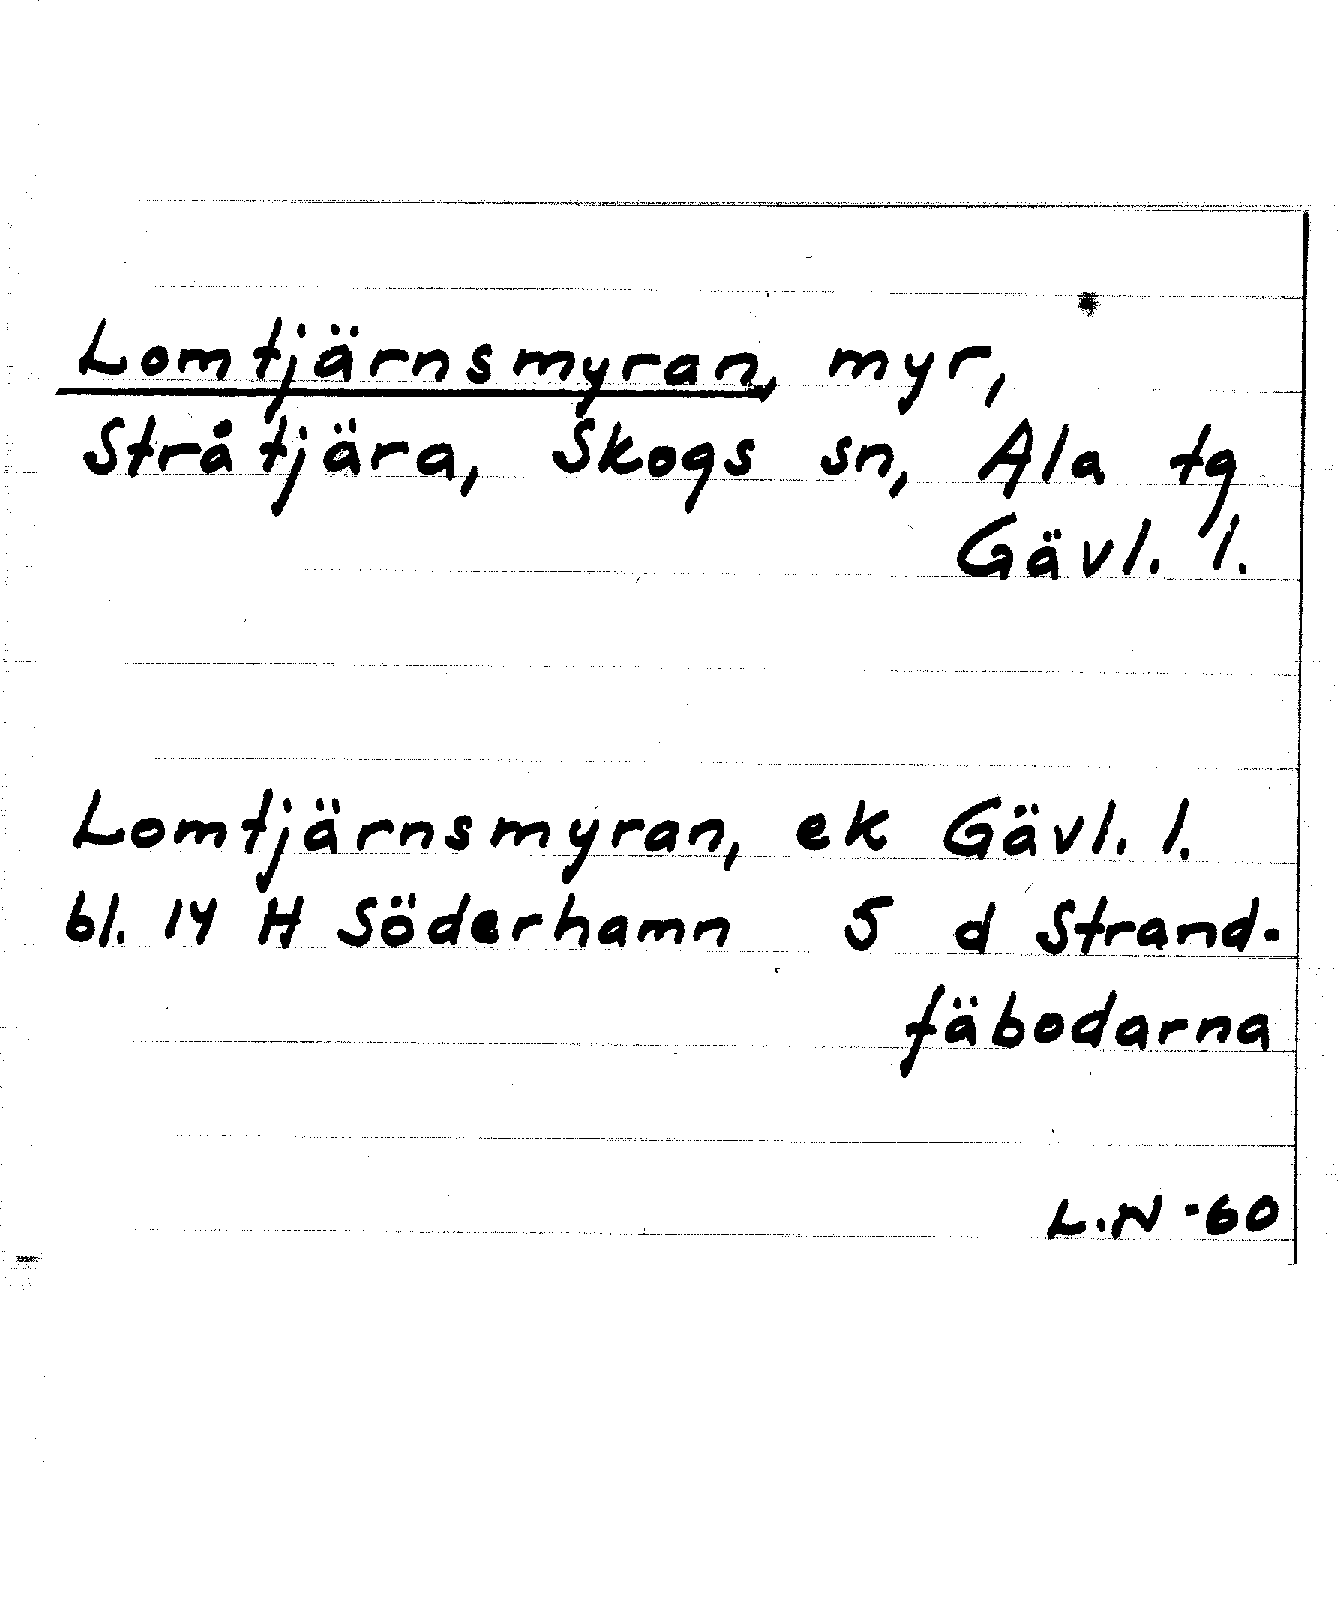 Lomtjärnsmyran, myr,
Stråtjära, Skogs sn, Ala tg
Gävl. l.
Lomtjärnsmyran, ek Gävl. l.
bl. 14 H Söderhamn 5 d Strand-
fäbodarna
L.N -60